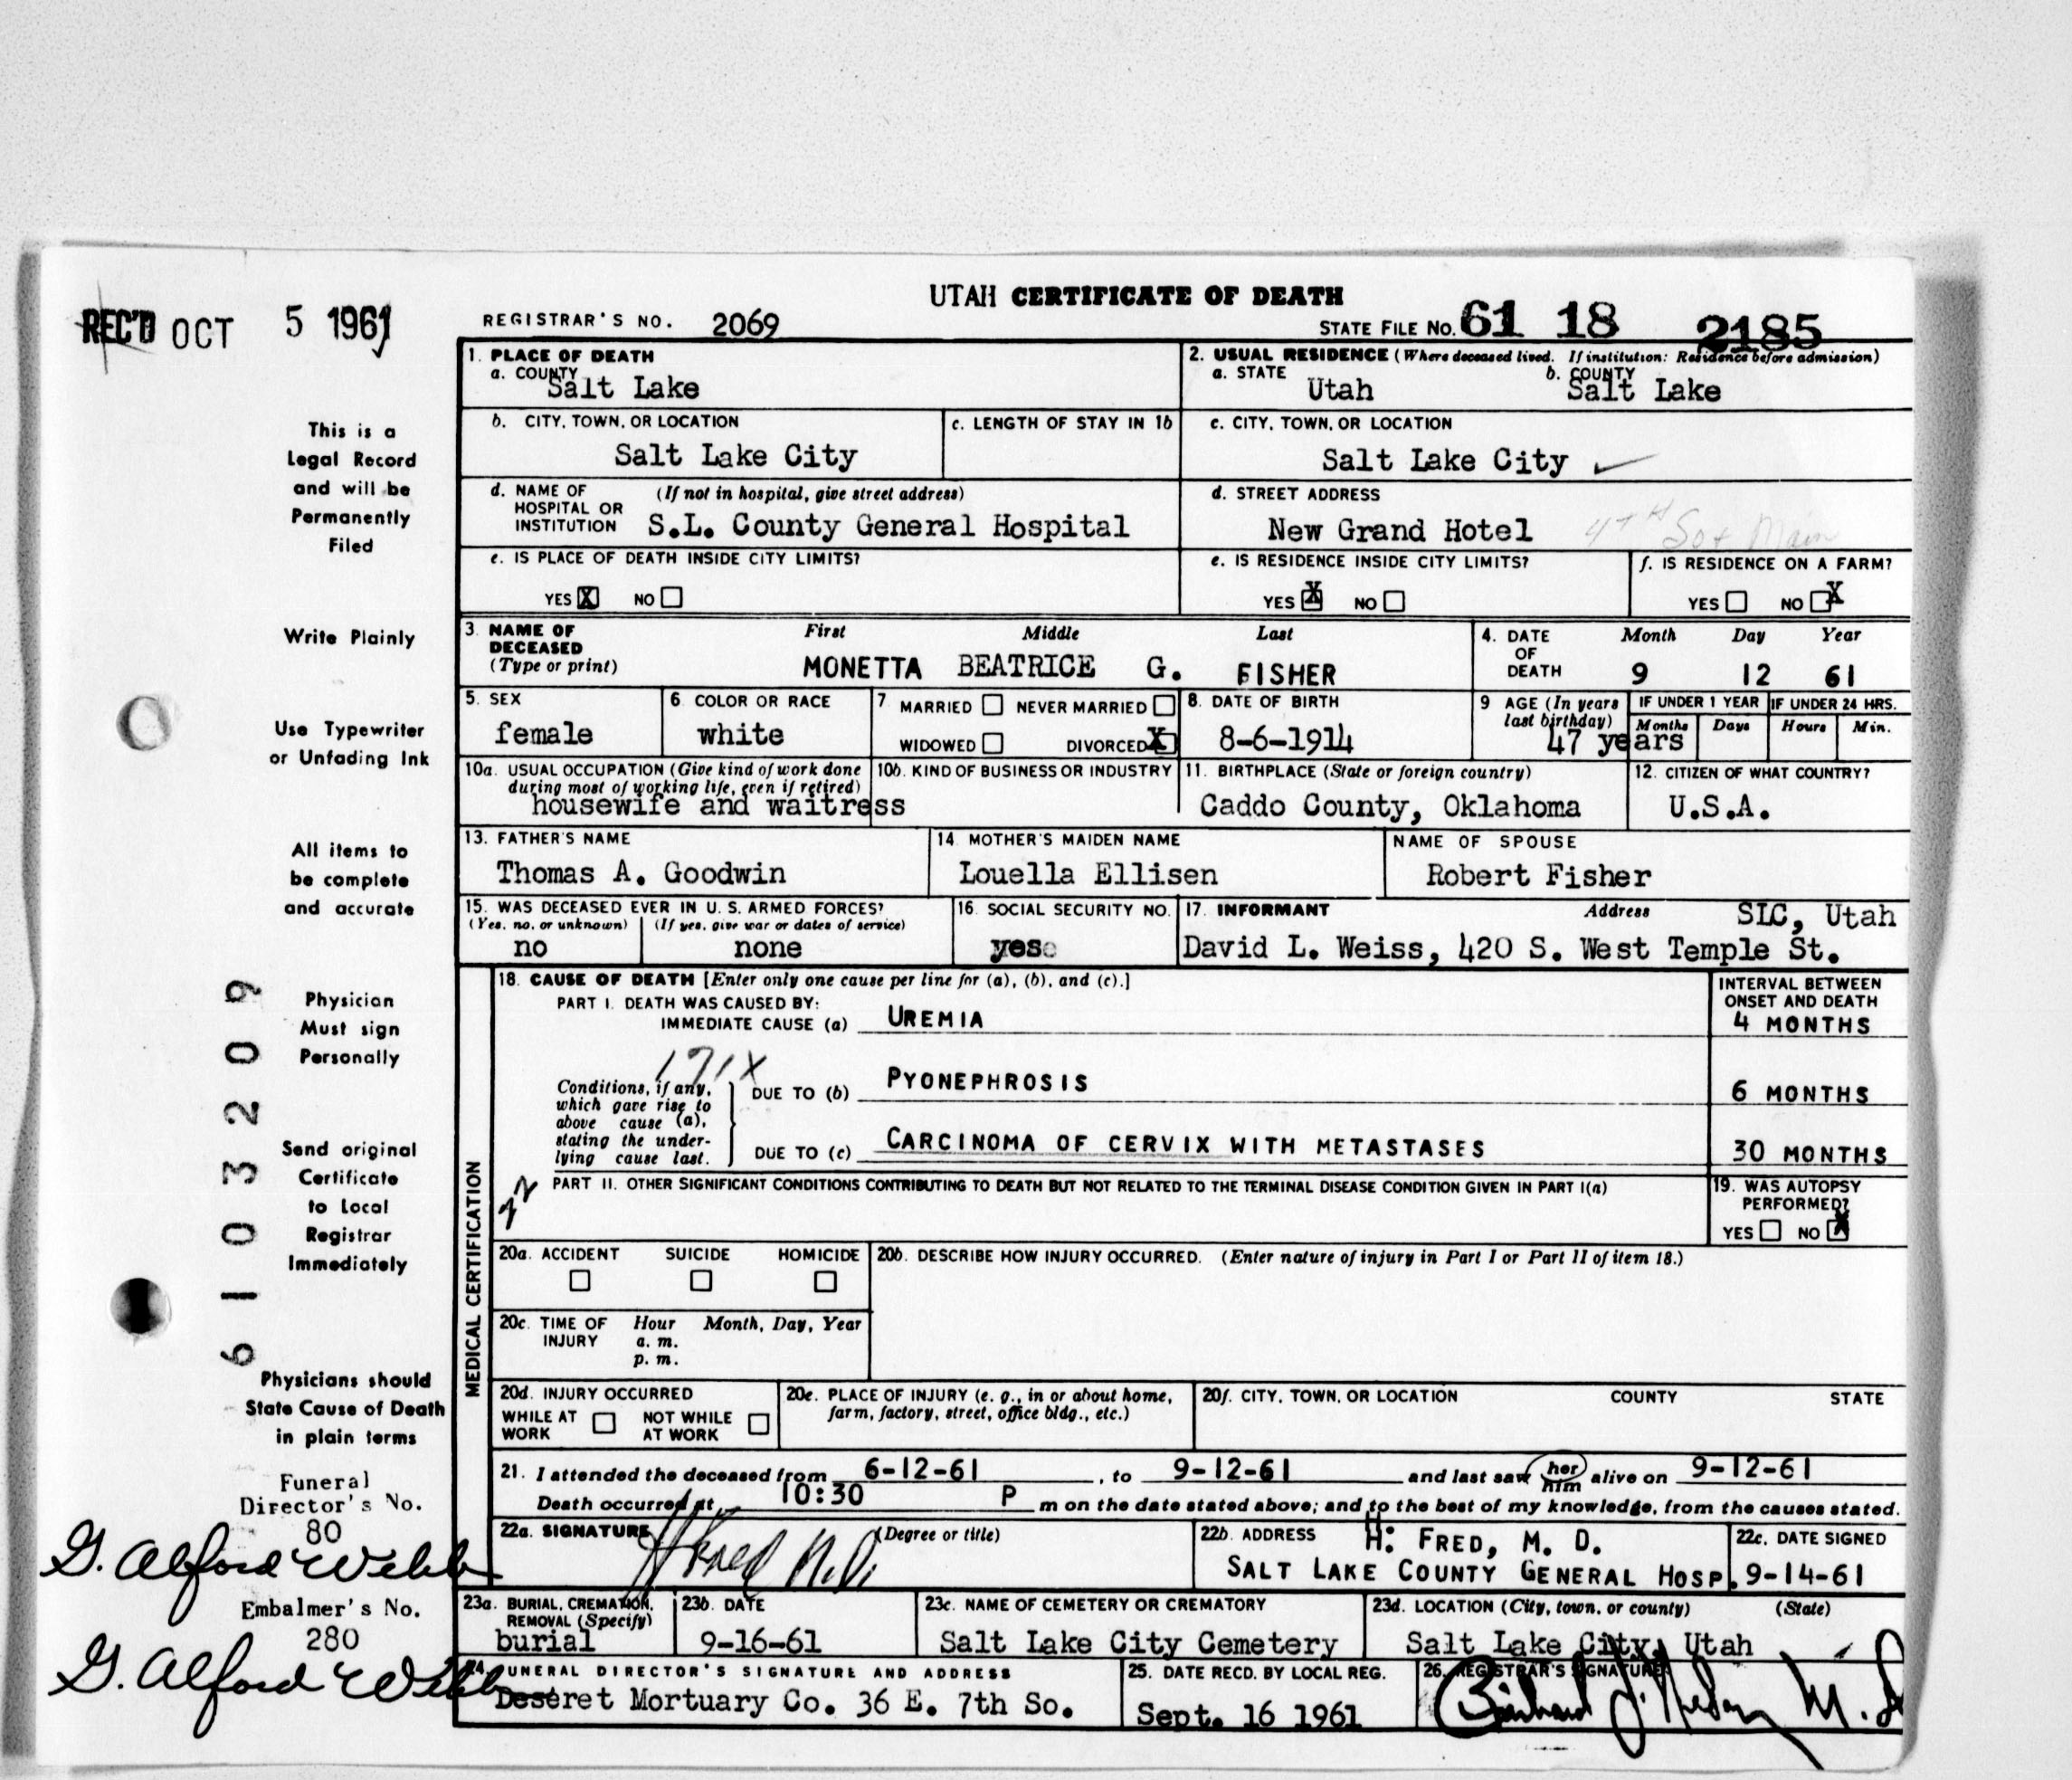 UTAH CERTIFICATE OF DEATH
REC'D OCT 5 1961
REGISTRAR'S NO. 2069
STATE FILE NO. 61 18 2185
1. PLACE OF DEATH
a. COUNTY
Salt Lake
2. USUAL RESIDENCE (Where deceased lived. If institution: Residence before admission)
a. STATE
Utah
b. COUNTY
Salt Lake
b. CITY, TOWN, OR LOCATION
Salt Lake City
c. LENGTH OF STAY IN 1b
c. CITY, TOWN, OR LOCATION
Salt Lake City
d. NAME OF HOSPITAL OR INSTITUTION
(If not in hospital, give street address)
S.L. County General Hospital
d. STREET ADDRESS
New Grand Hotel 4TH So + Main
e. IS PLACE OF DEATH INSIDE CITY LIMITS?
YES X NO
e. IS RESIDENCE INSIDE CITY LIMITS?
YES X NO
f. IS RESIDENCE ON A FARM?
YES NO X
3. NAME OF DECEASED
(Type or print)
First Middle Last
MONETTA BEATRICE G. FISHER
4. DATE OF DEATH
Month Day Year
9 12 61
5. SEX
female
6. COLOR OR RACE
white
7 MARRIED NEVER MARRIED
WIDOWED DIVORCED X
8. DATE OF BIRTH
8-6-1914
9 AGE (In years last birthday)
47 years
IF UNDER 1 YEAR
Months Days
IF UNDER 24 HRS.
Hours Min.
10a. USUAL OCCUPATION (Give kind of work done during most of working life, even if retired)
housewife and waitress
10b. KIND OF BUSINESS OR INDUSTRY
11. BIRTHPLACE (State or foreign country)
Caddo County, Oklahoma
12. CITIZEN OF WHAT COUNTRY?
U.S.A.
13. FATHER'S NAME
Thomas A. Goodwin
14 MOTHER'S MAIDEN NAME
Louella Ellisen
NAME OF SPOUSE
Robert Fisher
15. WAS DECEASED EVER IN U. S. ARMED FORCES?
(Yes, no, or unknown)
no
(If yes, give war or dates of service)
none
16. SOCIAL SECURITY NO.
yes
17. INFORMANT Address
SLC, Utah
David L. Weiss, 420 S. West Temple St.
MEDICAL CERTIFICATION
18. CAUSE OF DEATH [Enter only one cause per line for (a), (b), and (c).]
PART I. DEATH WAS CAUSED BY:
IMMEDIATE CAUSE (a) UREMIA
INTERVAL BETWEEN ONSET AND DEATH
4 MONTHS
171X
Conditions, if any, which gave rise to above cause (a), stating the underlying cause last.
DUE TO (b) PYONEPHROSIS
6 MONTHS
DUE TO (c) CARCINOMA OF CERVIX WITH METASTASES
30 MONTHS
PART II. OTHER SIGNIFICANT CONDITIONS CONTRIBUTING TO DEATH BUT NOT RELATED TO THE TERMINAL DISEASE CONDITION GIVEN IN PART I(a)
19. WAS AUTOPSY PERFORMED?
YES NO X
20a. ACCIDENT SUICIDE HOMICIDE
20b. DESCRIBE HOW INJURY OCCURRED. (Enter nature of injury in Part I or Part II of item 18.)
20c. TIME OF INJURY
Hour Month, Day, Year
a. m.
p. m.
20d. INJURY OCCURRED
WHILE AT WORK NOT WHILE AT WORK
20e. PLACE OF INJURY (e. g., in or about home, farm, factory, street, office bldg., etc.)
20f. CITY, TOWN, OR LOCATION COUNTY STATE
21. I attended the deceased from 6-12-61, to 9-12-61 and last saw her him alive on 9-12-61
Death occurred at 10:30 P m on the date stated above; and to the best of my knowledge, from the causes stated.
22a. SIGNATURE (Degree or title)
H Fred M.D.
22b. ADDRESS
H. FRED, M. D.
SALT LAKE COUNTY GENERAL HOSP.
22c. DATE SIGNED
9-14-61
23a. BURIAL, CREMATION, REMOVAL (Specify)
burial
23b. DATE
9-16-61
23c. NAME OF CEMETERY OR CREMATORY
Salt Lake City Cemetery
23d. LOCATION (City, town, or county) (State)
Salt Lake City, Utah
24. FUNERAL DIRECTOR'S SIGNATURE AND ADDRESS
Deseret Mortuary Co. 36 E. 7th So.
25. DATE RECD. BY LOCAL REG.
Sept. 16 1961
26. REGISTRAR'S SIGNATURE
This is a
Legal Record
and will be
Permanently
Filed
Write Plainly
Use Typewriter
or Unfading Ink
All items to
be complete
and accurate
Physician
Must sign
Personally
Send original
Certificate
to Local
Registrar
Immediately
Physicians should
State Cause of Death
in plain terms
6103209
Funeral
Director's No.
80
G. Alford Webb
Embalmer's No.
280
G. Alford Webb